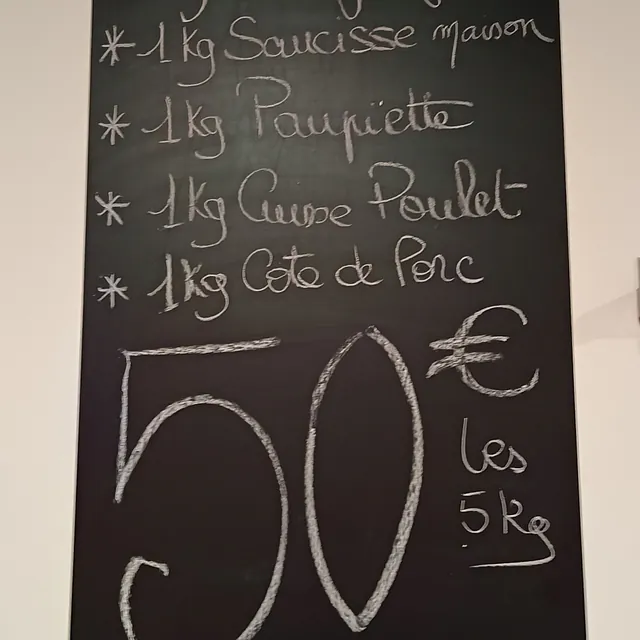 * 1kg Saucisse maison
* 1kg Paupiette
* 1kg Cuisse Poulet
* 1kg Cote de Porc
50 €
les
5kg